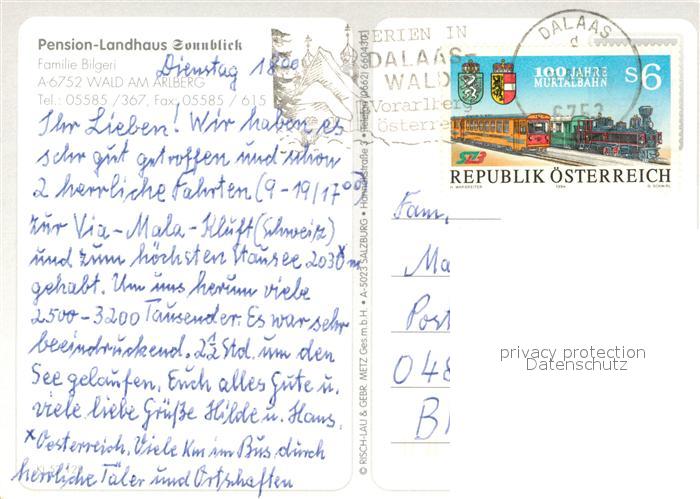 Pension-Landhaus Sonnblick
Familie Bilgeri
A-6752 WALD AM ARLBERG
Tel.: 05585 /367, Fax: 05585 / 615
Dienstag 18⁰⁰
Ihr Lieben! Wir haben es
sehr gut getroffen und schon
2 herrliche Fahrten (9-19/17⁰⁰)
zur Via-Mala-Kluft (Schweiz)
und zum höchsten Stausee 2030ˣm
gehabt. Um uns herum viele
2500-3200 Tausender. Es war sehr
beeindruckend. 2½ Std. um den
See gelaufen. Euch alles Gute u.
viele liebe Grüße Hilde u. Hans.
ˣOesterreich. Viele Km im Bus durch
herrliche Täler und Ortschaften
© RISCH-LAU & GEBR. METZ Ges.m.b.H. • A-5023 SALZBURG •
FERIEN IN
DALAAS-
WALD
Vorarlberg
Österre
DALAAS
d
6752
100 JAHRE
MURTALBAHN
S6
StB
REPUBLIK ÖSTERREICH
1994
Fam.
Ma
Post
048
B
privacy protection
Datenschutz